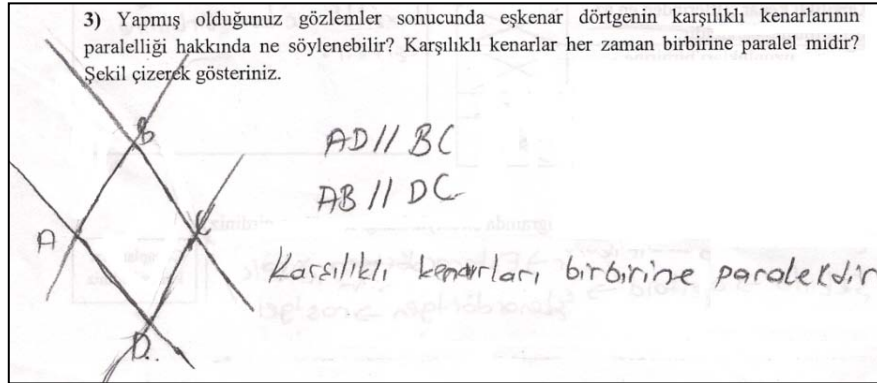 3) Yapmış olduğunuz gözlemler sonucunda eşkenar dörtgenin karşılıklı kenarlarının
paralelliği hakkında ne söylenebilir? Karşılıklı kenarlar her zaman birbirine paralel midir?
Şekil çizerek gösteriniz.
B
AD // BC
AB // DC
A
C
Karşılıklı kenarları birbirine paraleldir
D